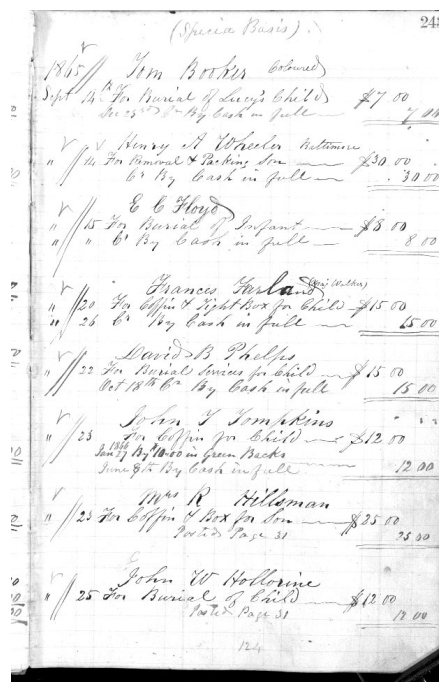 (Specia Basis)
243
1865 Tom Booker Coloured
Sept 14th For Burial of Lucy's Child $7 00
Dec 23rd Cr By Cash in full 7 00
Henry A Wheeler Baltimore
" 14 For Removal & Packing Son $30 00
Cr By Cash in full 30 00
E C Floyd
" 15 For Burial of Infant $8 00
" " Cr By Cash in full 8 00
Frances Farland (Maj Walker)
" 20 For Coffin & Night Box for Child $15 00
" 26 Cr By Cash in full 15 00
David B Phelps
" 22 For Burial Services for Child $15 00
Oct 18th Cr By Cash in full 15 00
John T Tompkins
" 23 For Coffin for Child $12 00
1866
Jan 27 By $10.00 in Green Backs
June 9th By Cash in full 12 00
Mrs R Hillsman
" 23 For Coffin & Box for Son $25 00
Posted Page 31 25 00
John W
" 25 For Burial of Child $12 00
Posted Page 31 12 00
124